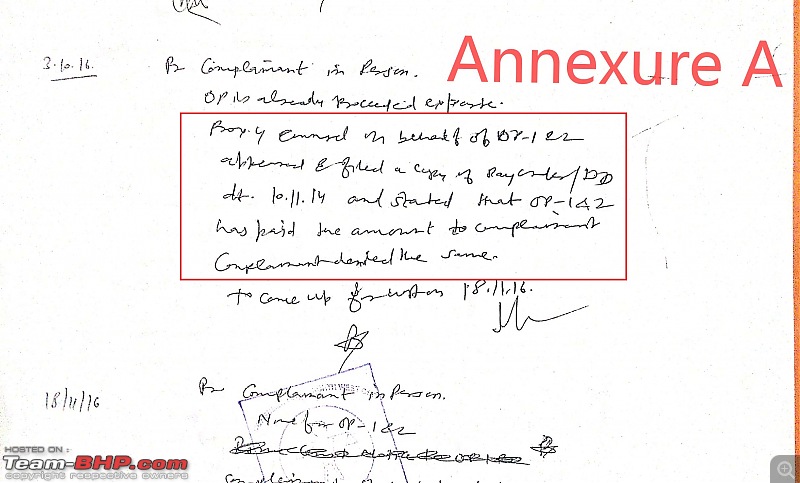 Annexure A
3.10.16.
Pr Complainant in Person.
OP is already Proceeded exparte.
Proxy Counsel on behalf of OP-1 & 2
appeared & filed a copy of Pay order/DD
dt. 10.11.14 and stated that OP-1 & 2
has paid the amount to complainant
Complainant denied the same.
to come up for on 18.11.16.
18/11/16
Pr Complainant in Person.
None for OP-1 & 2
HOSTED ON :
Team-BHP.com
copyright respective owners